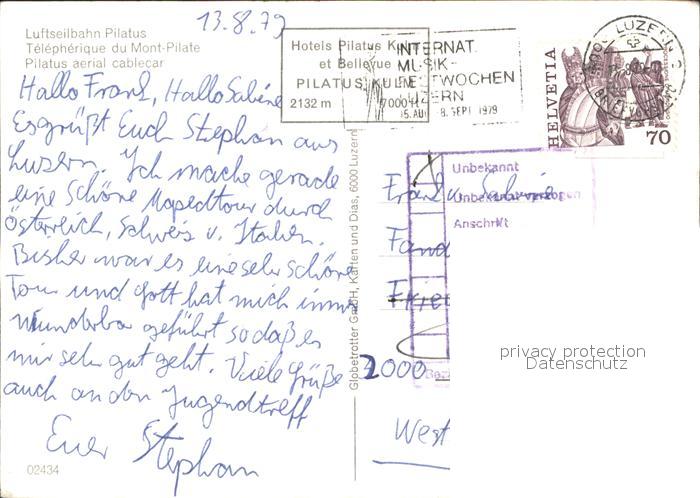 13.8.79
Luftseilbahn Pilatus
Téléphérique du Mont-Pilate
Pilatus aerial cablecar
Hotels Pilatus K
et Bellevue
PILATUS KULM
2132 m 7000 ft
INTERNAT.
MUSIK-
FESTWOCHEN
LUZERN
15. AU 8. SEPT. 1979
LUZERN 2
HELVETIA
70
Hallo Frank, Hallo Sabine
Es grüßt Euch Stephan aus
Luzern. Ich mache gerade
eine schöne Mopedtour durch
Österreich, Schweiz u. Italien.
Bisher war es eine sehr schöne
Tour und Gott hat mich imme
wunderba geführt so daß es
mir sehr gut geht. Viele Grüße
auch an den Jugendtreff
Euer Stephan
02434
Globetrotter GmbH, Karten und Dias, 6000 Luzern
Unbekannt
Unbekannt verzogen
Anschrift
Frank u. Sabine
2000
West
privacy protection
Datenschutz